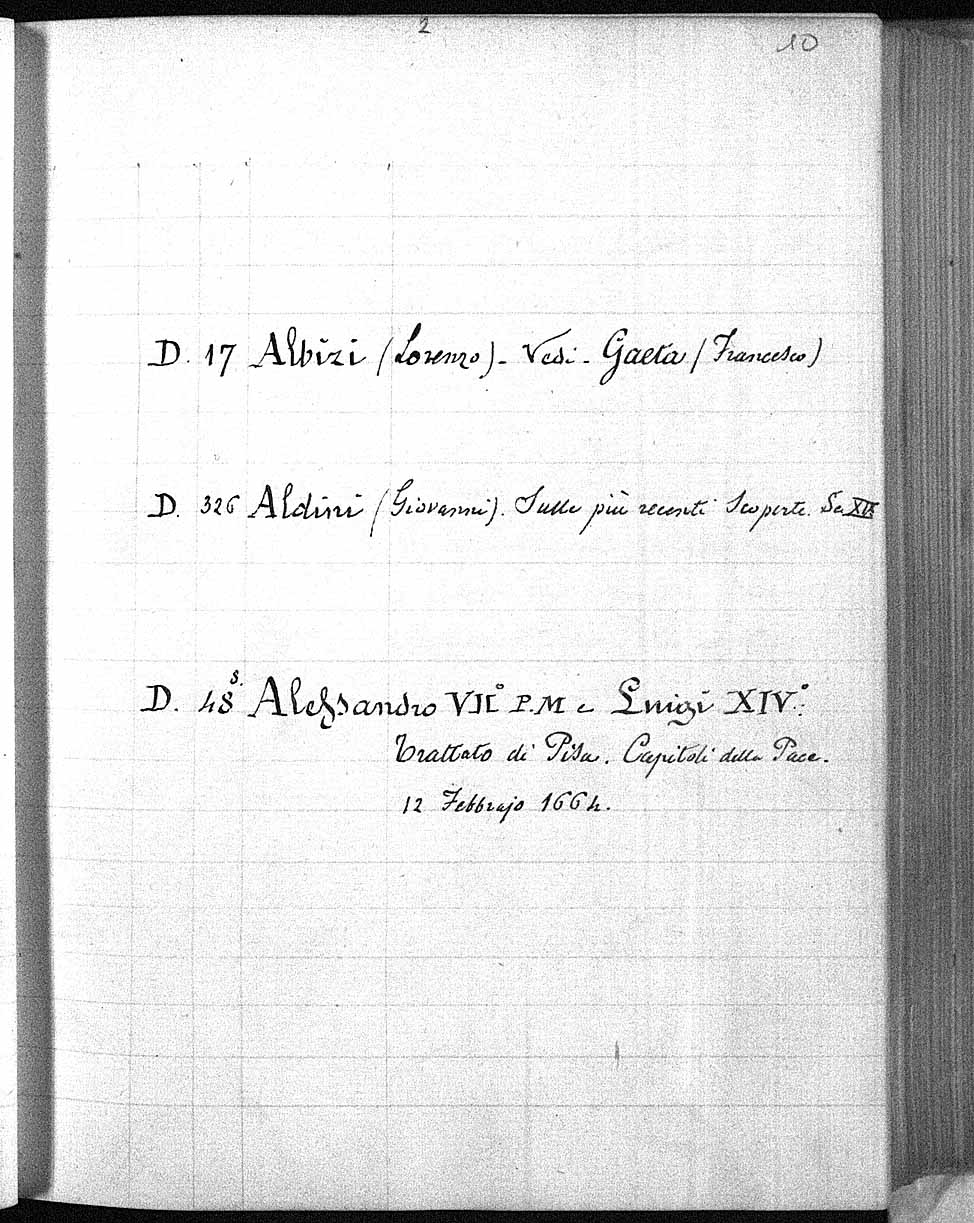 2
10
D. 17 Albizi (Lorenzo) - Vedi - Gaeta (Francesco)
D. 326 Aldini (Giovanni). Sulle più recenti Scoperte. Se
D. 48 s. Alessandro VII° P.M e Luigi XIV°.
Trattato di Pisa. Capitoli della Pace.
12 Febbrajo 1664.